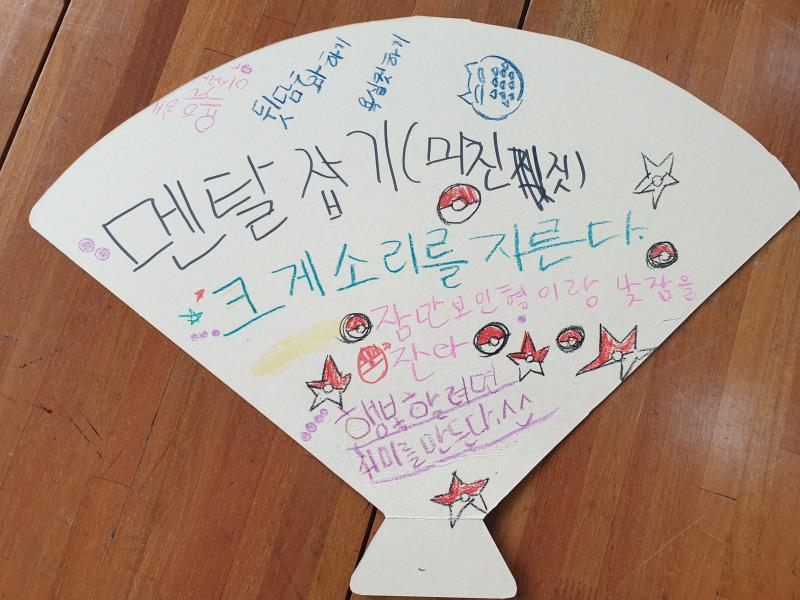 뒷담화 하기
욕심컷하기
멘탈 잡기(미친 짓)
크게소리를 지른다.
잠만보인형이랑 낮잠을
잔아
행복할려면
취미를만든다.^^